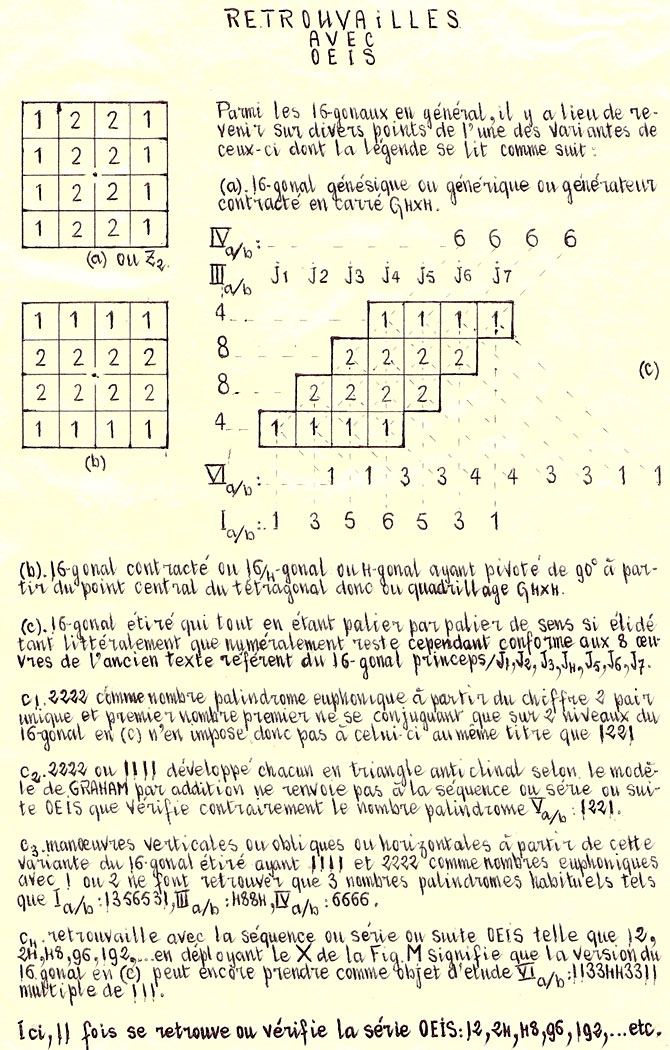 RETROUVAILLES
AVEC
OEIS
1 2 2 1
1 2 2 1
1 2 2 1
1 2 2 1
(a) ou Z2.
Parmi les 16-gonaux en général, il y a lieu de re-
venir sur divers points de l'une des variantes de
ceux-ci dont la légende se lit comme suit :
(a). 16-gonal génésique ou générique ou générateur
contracté en carré G4x4.
IV a/b : 6 6 6 6
III a/b : J1 J2 J3 J4 J5 J6 J7
4 1 1 1 1
8 2 2 2 2
8 2 2 2 2
4 1 1 1 1
(c)
VI a/b : 1 1 3 3 4 4 3 3 1 1
I a/b : 1 3 5 6 5 3 1
1 1 1 1
2 2 2 2
2 2 2 2
1 1 1 1
(b)
(b). 16-gonal contracté ou 16/4-gonal ou 4-gonal ayant pivoté de 90° à par-
tir du point central du tétragonal donc ou quadrillage G4x4.
(c). 16-gonal étiré qui tout en étant palier par palier de sens si élidé
tant littéralement que numéralement reste cependant conforme aux 8 œu-
vres de l'ancien texte référent du 16-gonal princeps/J1, J2, J3, J4, J5, J6, J7.
C1. 2222 comme nombre palindrome euphonique à partir du chiffre 2 pair
unique et premier nombre premier ne se conjuguant que sur 2 niveaux du
16-gonal en (c) n'en impose donc pas à celui-ci au même titre que 1221
C2. 2222 ou 1111 développé chacun en triangle anticlinal selon le modè-
le de GRAHAM par addition ne renvoie pas à la séquence ou série ou sui-
te OEIS que vérifie contrairement le nombre palindrome V a/b : 1221.
C3. manœuvres verticales ou obliques ou horizontales à partir de cette
variante du 16-gonal étiré ayant 1111 et 2222 comme nombres euphoniques
avec 1 ou 2 ne font retrouver que 3 nombres palindromes habituels tels
que I a/b : 1356531, III a/b : 4884, IV a/b : 6666.
C4. retrouvaille avec la séquence ou série ou suite OEIS telle que 12,
24, 48, 96, 192,... en déployant le X de la Fig. M signifie que la version du
16 gonal en (c) peut encore prendre comme objet d'étude VI a/b : 1133443311
multiple de 111.
Ici, 11 fois se retrouve ou vérifie la série OEIS: 12, 24, 48, 96, 192,...etc.